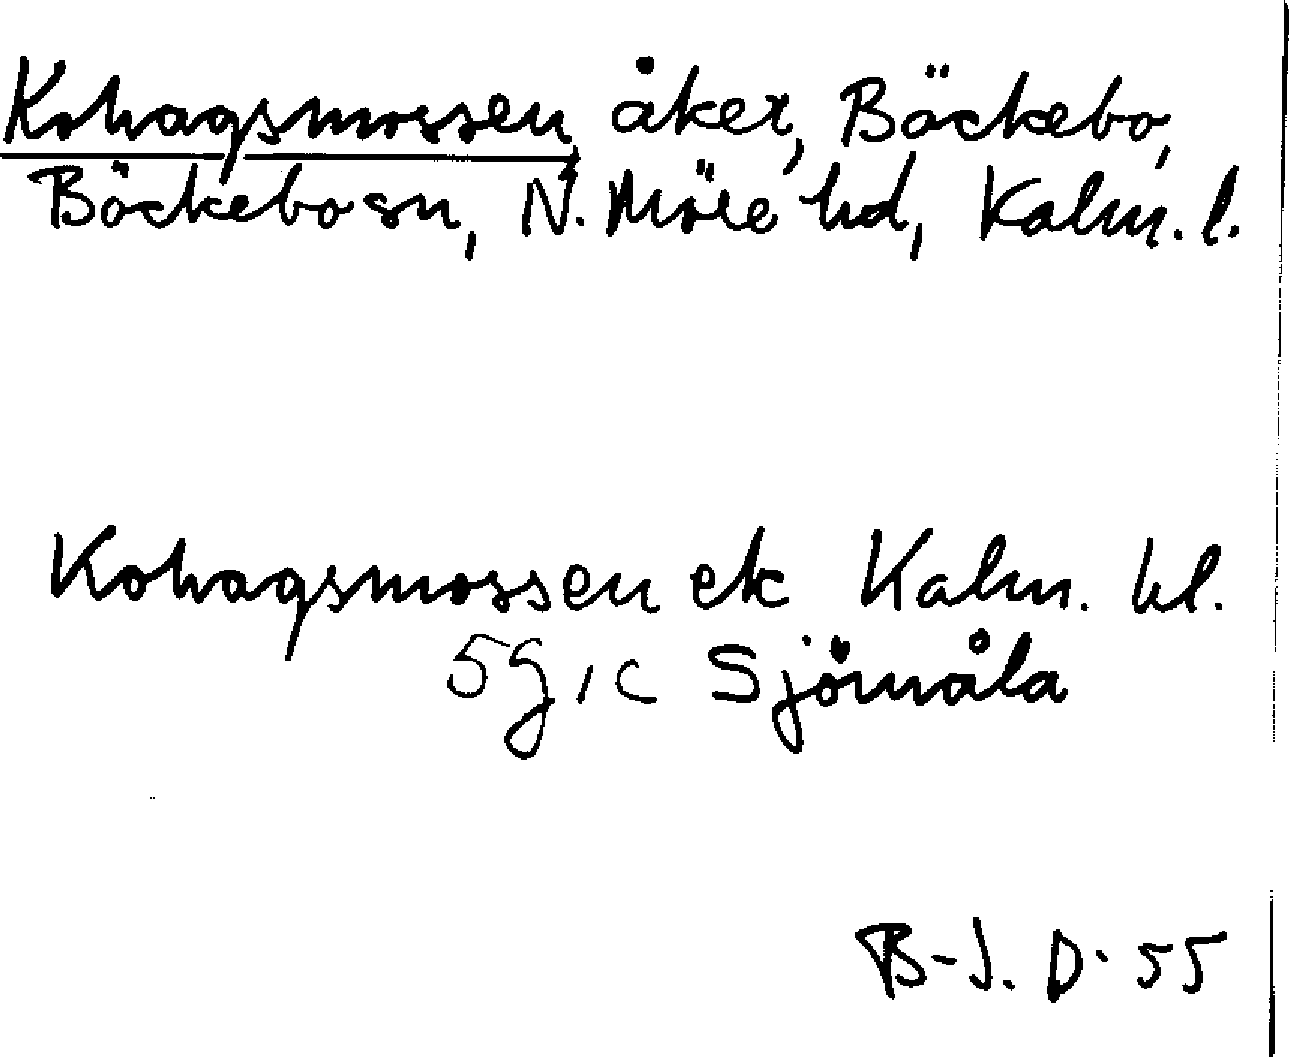 Kohagsmossen, åker, Bäckebo,
Bäckebo sn, N. Möre hd, Kalm. l.
Kohagsmossen ek Kalm. bl.
5 g, c Sjömåla
B-J. D. 55